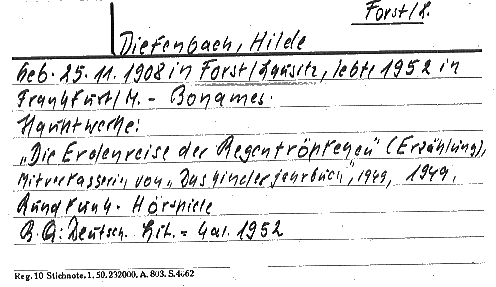 Forst/L.
Diefenbach, Hilde
Geb. 25.11.1908 in Forst/Lausitz, lebte 1952 in
Frankfurt/M. - Bonames.
Hauptwerke:
„Die Erdenreise der Regentröpfchen" (Erzählung),
Mitverfasserin von „Das Kinderjahrbuch", 1949, 1949,
Rundfunk-Hörspiele
B.Q: Deutsch. Lit.-Kal. 1952
Reg. 10 Stichnote, 1, 50. 232000. A. 803. S. 4662